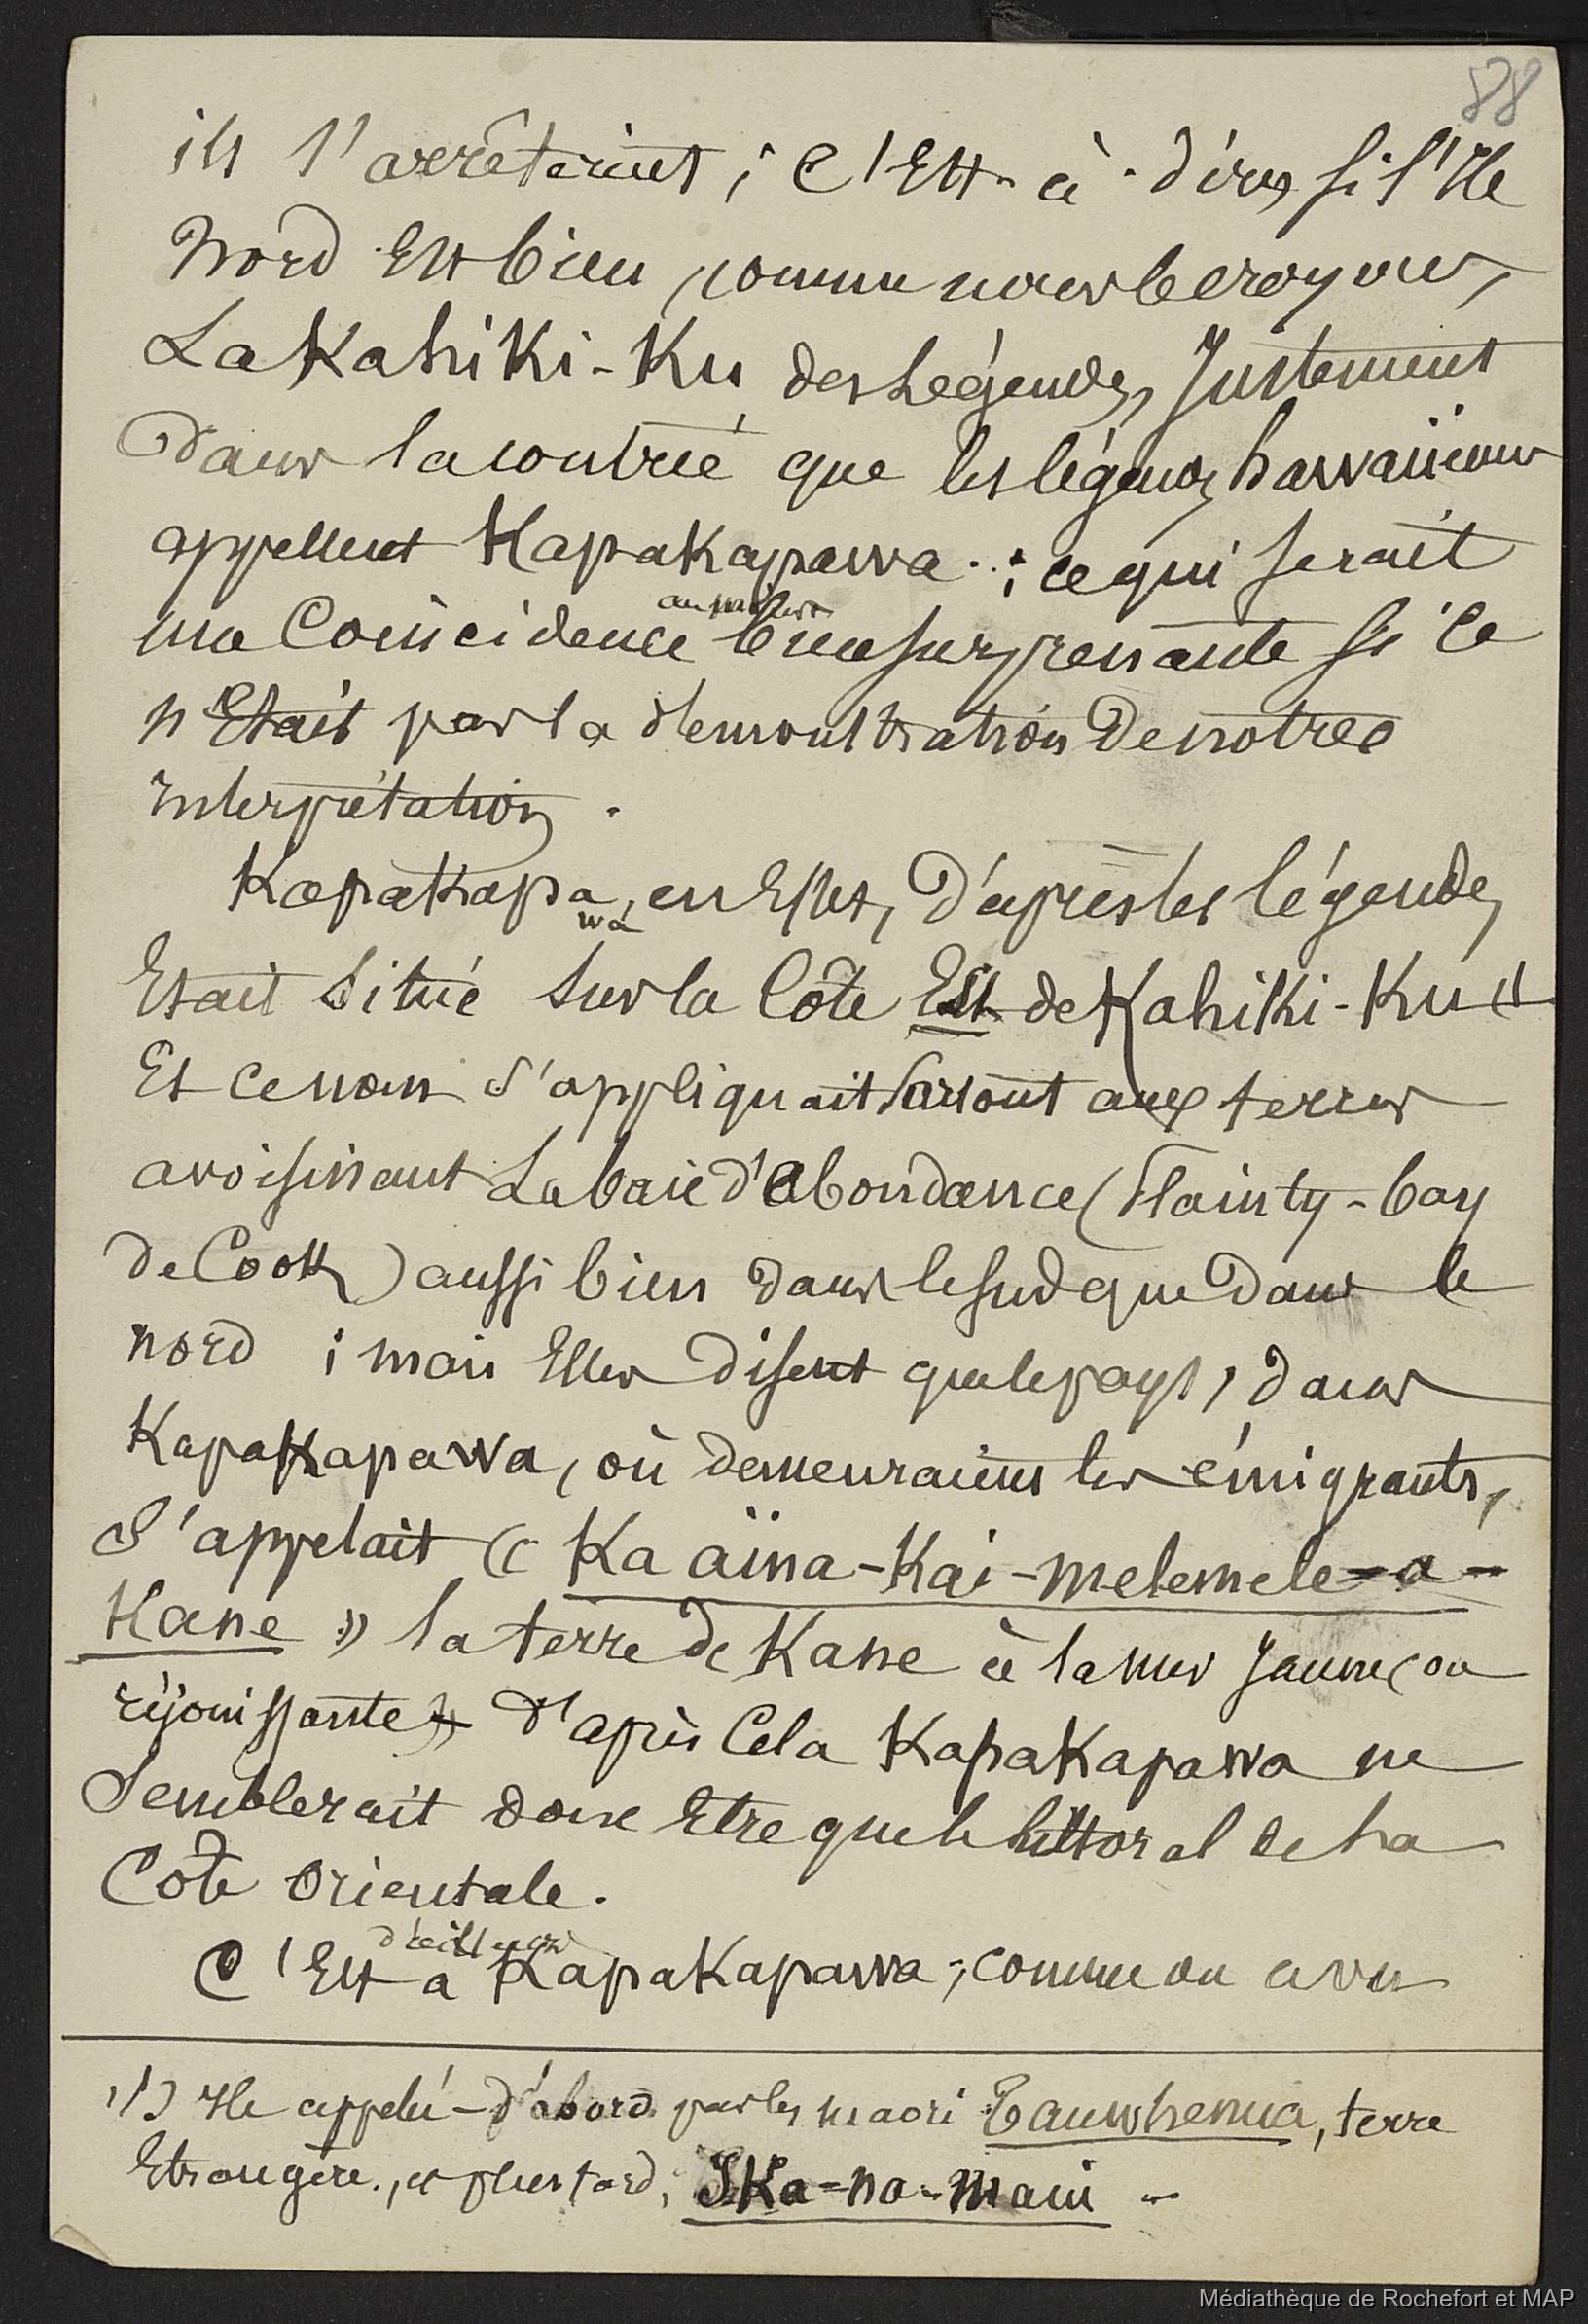 88
ils s'arrêtèrent ; c'Est-à-dire, si l'Ile
Nord Est bien, comme nous le croyons,
La Kahiki-Ku des Légendes, Justement
Dans la contrée que les légendes hawaiiennes
appellent Kapakapawa : ce qui serait
une Coïncidence bien surprenante si ce
n'Etait pas la démonstration De notre
Interprétation.
Kapakapa, en Effet, D'après les légendes,
wa
Etait Située Sur la Côte Est de Kahiki-Ku (1
Et ce nom s'appliquait Surtout aux terres
avoisinant La baie d'Abondance (Plainty-bay
De Cook) aussi bien dans le sud que Dans le
nord ; mais Elles Disent que le pays, Dans
Kapakapawa, où Demeuraient les émigrants,
S'appelait « Ka aïna-Kai-melemele-a-
Kane » la terre de Kane à la mer Jaune (ou
réjouissante) D'après Cela Kapakapawa ne
Semblerait donc Etre que le littoral de la
Côte Orientale.
d'ailleurs
C'Est a Kapakapawa, comme on a vu
(1) Ile appelée d'abord par les maori Tauwhenua, terre
Etrangère, et plus tard, Ika-na-maui -
Médiathèque de Rochefort et MAP